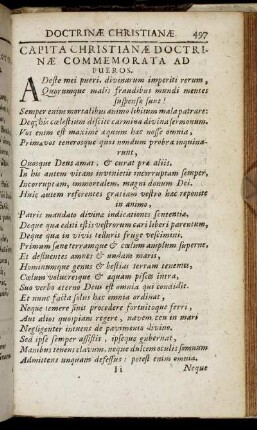 DOCTRINÆ CHRISTIANÆ. 497
CAPITA CHRISTIANÆ DOCTRI-
NÆ COMMEMORATA AD
PUEROS.
ADeste mei pueri, divinarum imperiti rerum,
Quorumque malis fraudibus mundi mentes
suspensæ sunt!
Semper enim mortalibus animo libitum mala patrare:
Deq; his cœlestium discite carmina divina sermonum.
Vos enim est maxime æquum hæc nosse omnia,
Primævos tenerosque quos nondum probra inquina-
runt,
Quosque Deus amat, & curat præ aliis.
In his autem vitam invenietis incorruptam semper,
Incorruptam, immortalem, magni donum Dei.
Huic autem referentes gratiam vestro hæc reponite
in animo,
Patris mandato divinæ indicationes sententiæ,
Deque qua editi estis vestrorum cari liberi parentum,
Deque qua in vivis telluris fruge vescimini.
Primum sane terramque & cœlum amplum superne,
Et defluentes amnes & undam maris,
Hominumque genus & bestias terram tenentis,
Cœlum volucresque & aquam pisces intra,
Suo verbo æterno Deus est omnia qui condidit.
Et nunc facta solus hæc omnia ordinat,
Neque temere sinit procedere fortuitoque ferri,
Aut alios quospiam regere, navem ceu in mari
Negligenter intuens de pavimento divino.
Sed ipse semper assistit, ipseque gubernat,
Manibus tenens clavum, neque dulcem oculis somnum
Admittens unquam defessus: potest enim omnia.
Ii Neque